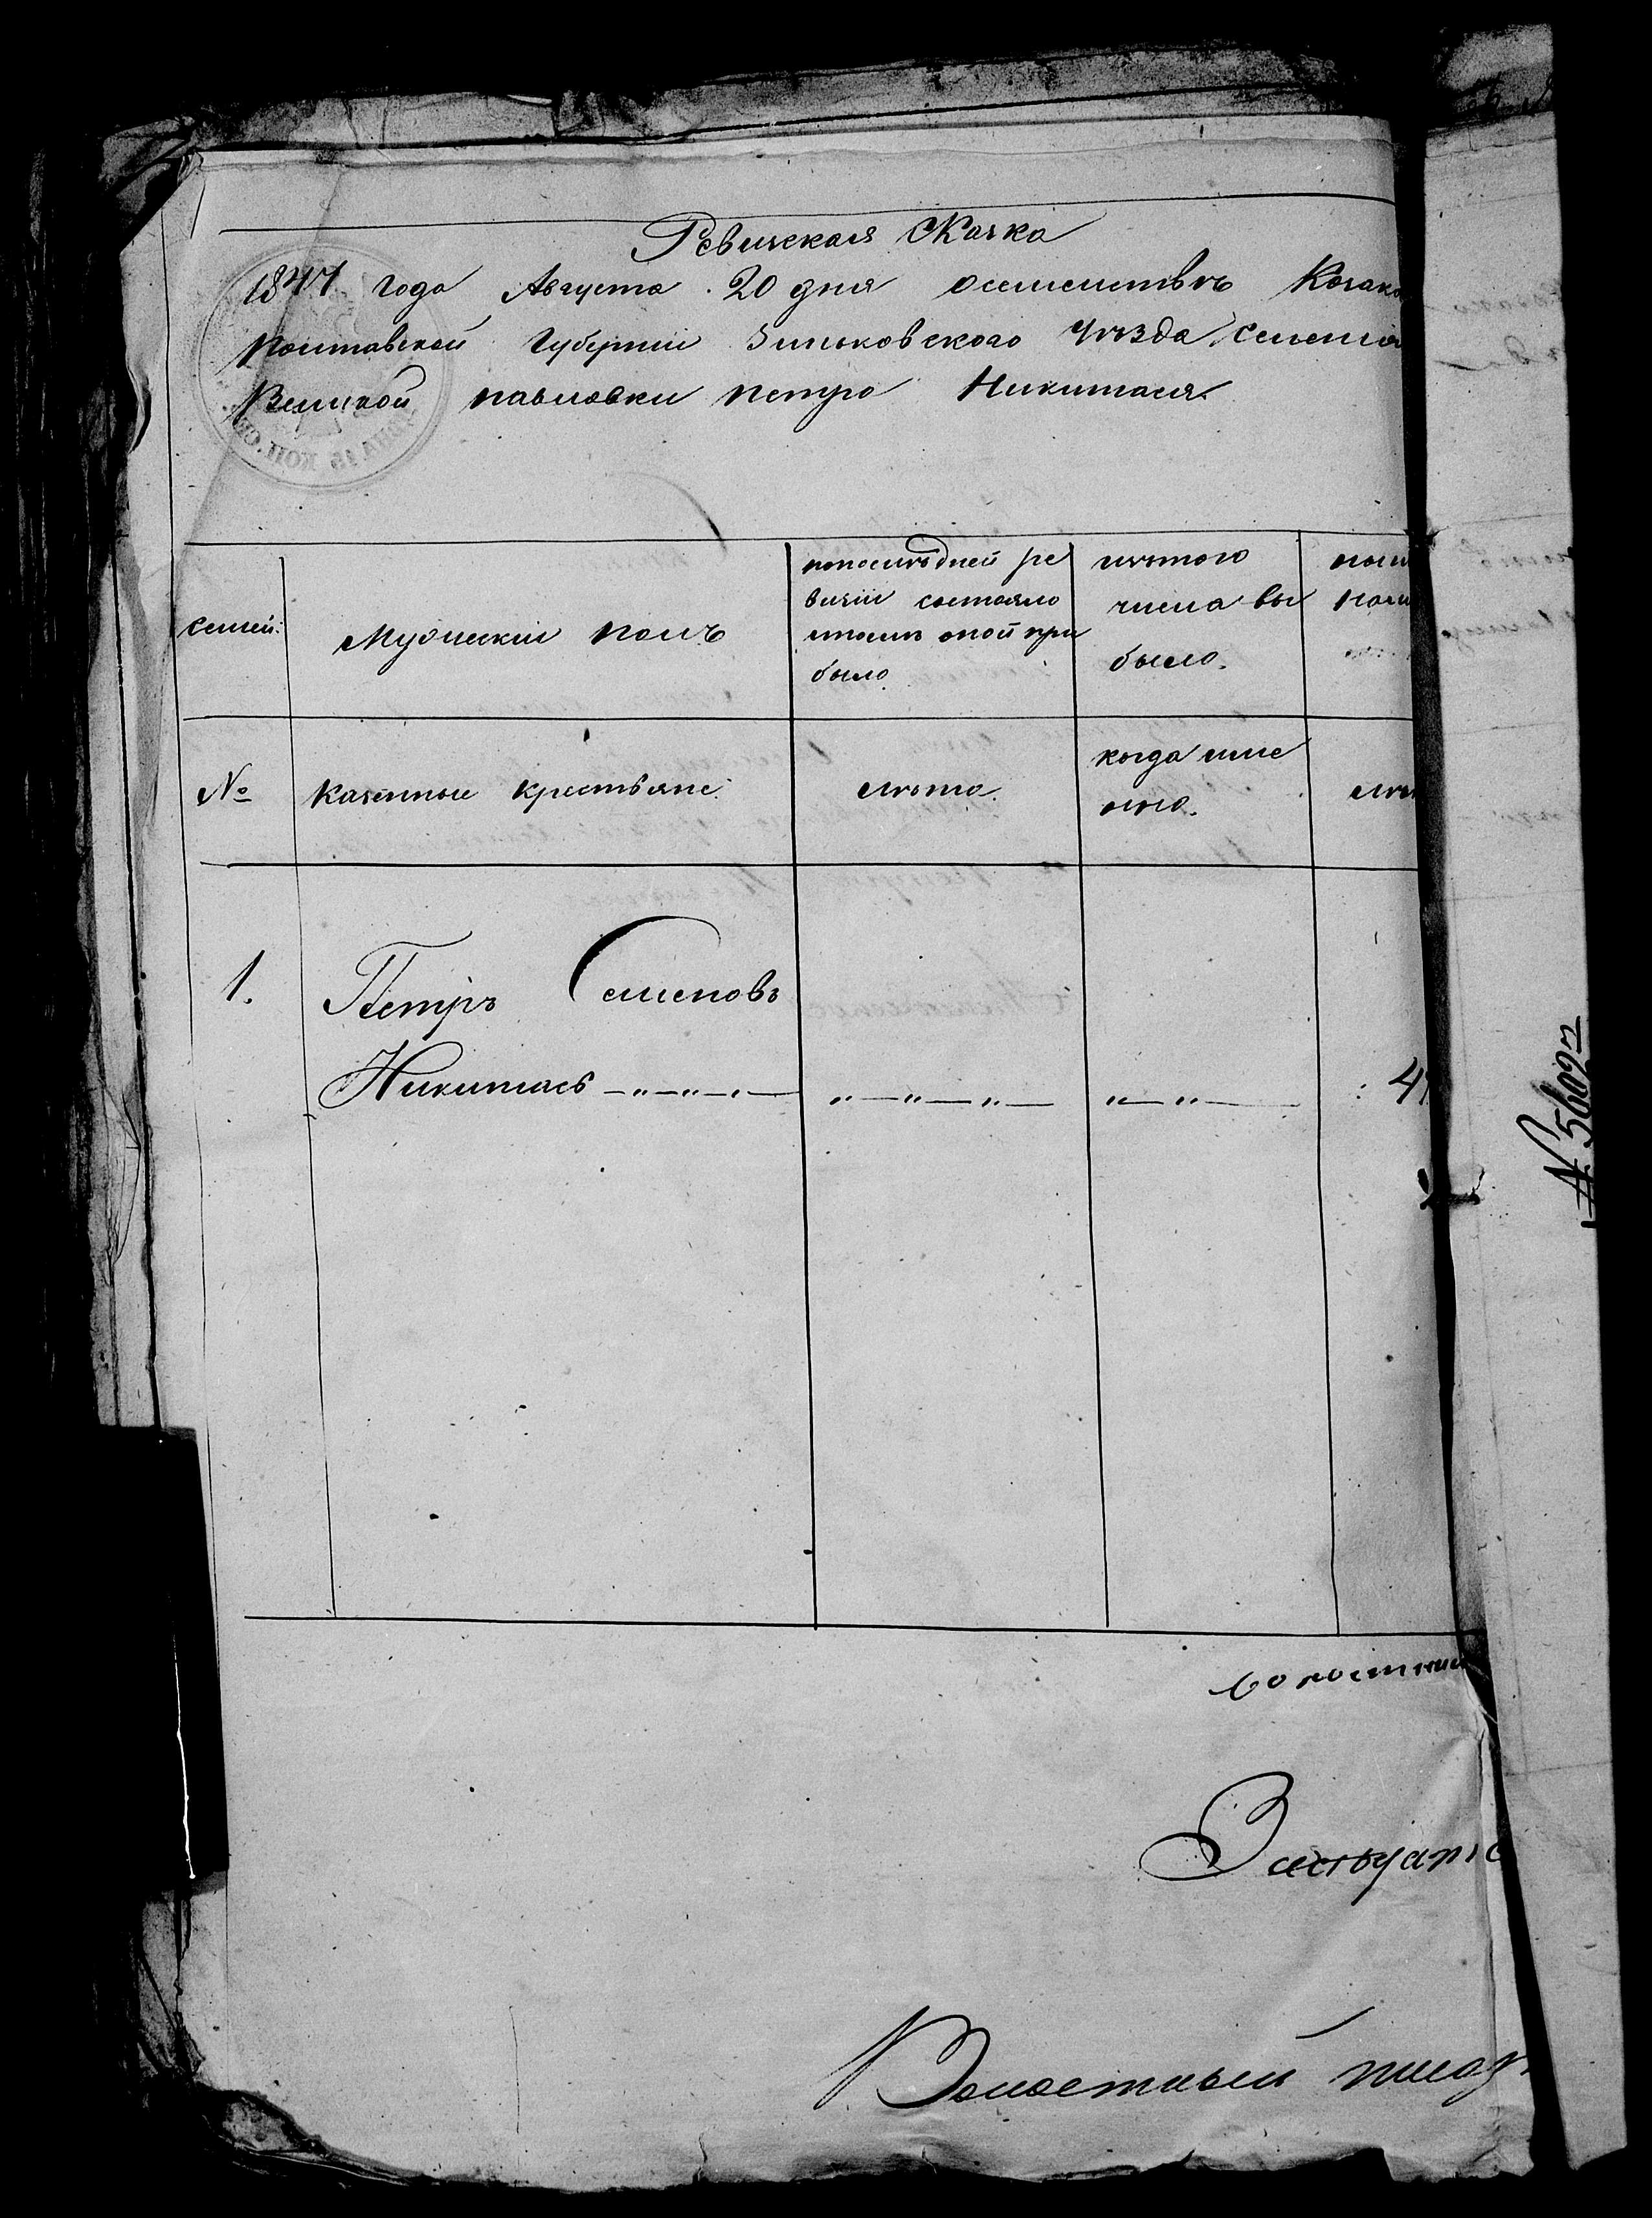 Ревизская Сказка
1847 года Августа 20 дня осемействѣ Козако
полтавской Губерніи Зиньковского Уѣзда, Селенія
Великой павловки петра Никитася.
семей:
Мужескій полъ
попослѣдней ре
визіи состояло
ипослѣ оной при
было
изътого
числа вы
было.
№
Казенные крестьяне.
лѣта.
когда име
нно.
1.
Петръ Семеновъ
Никитасъ —„—„—„—
„—„—„—
„—„—
: 4
Волостный писар
№ 5609